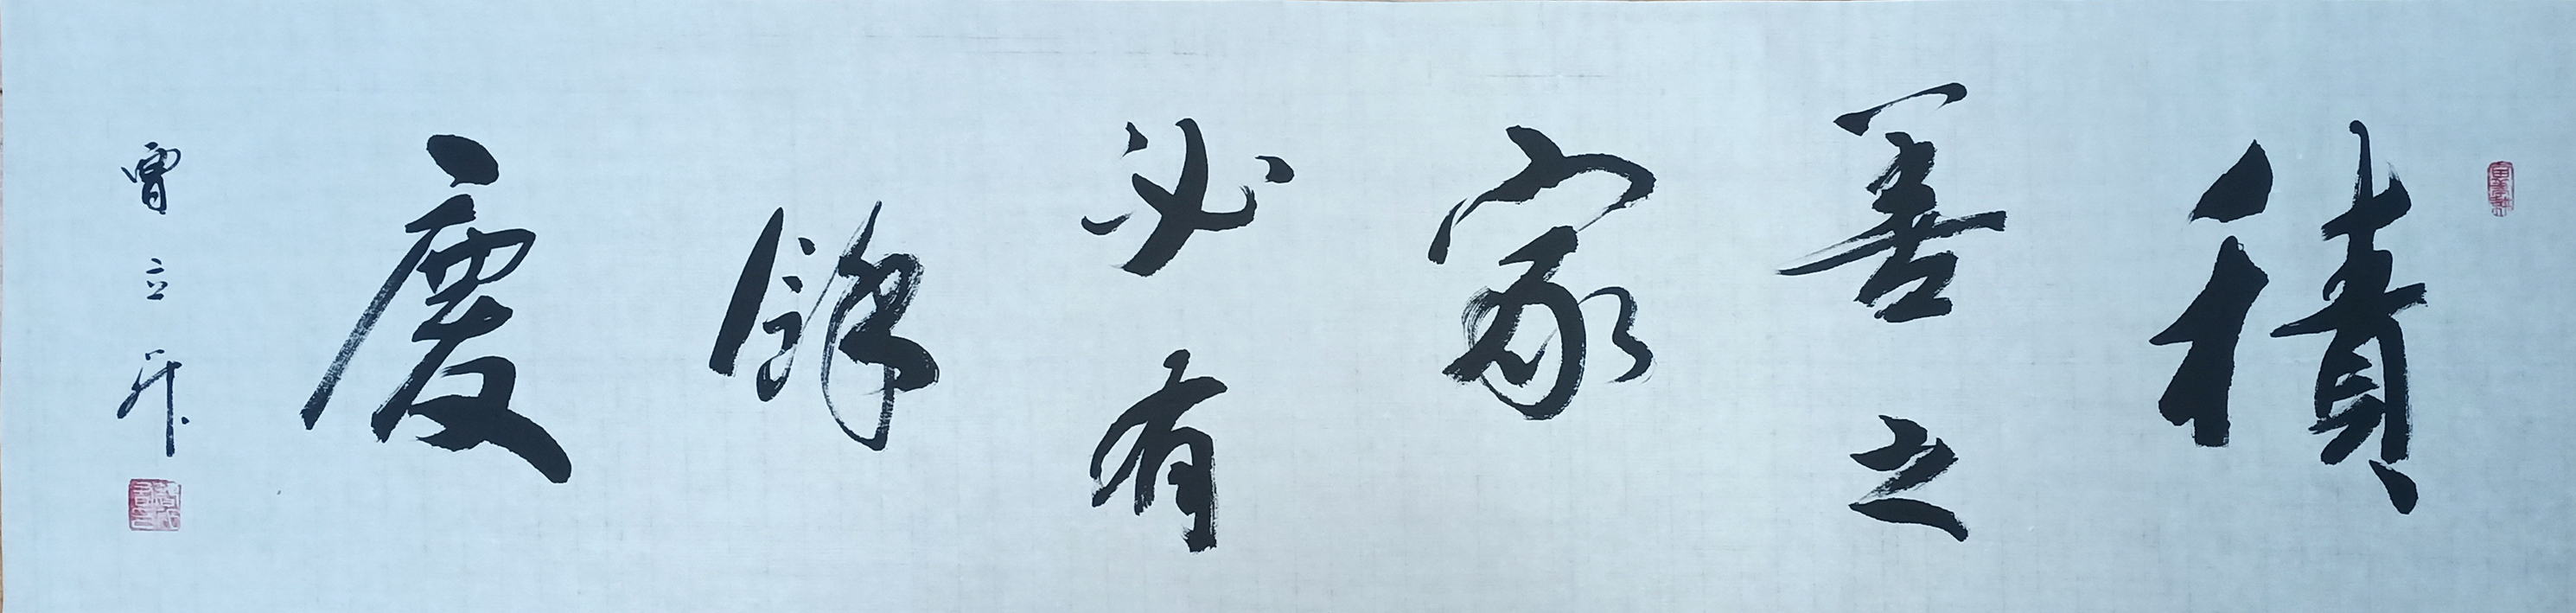 積
善之
家
必有
餘
慶
曾立升